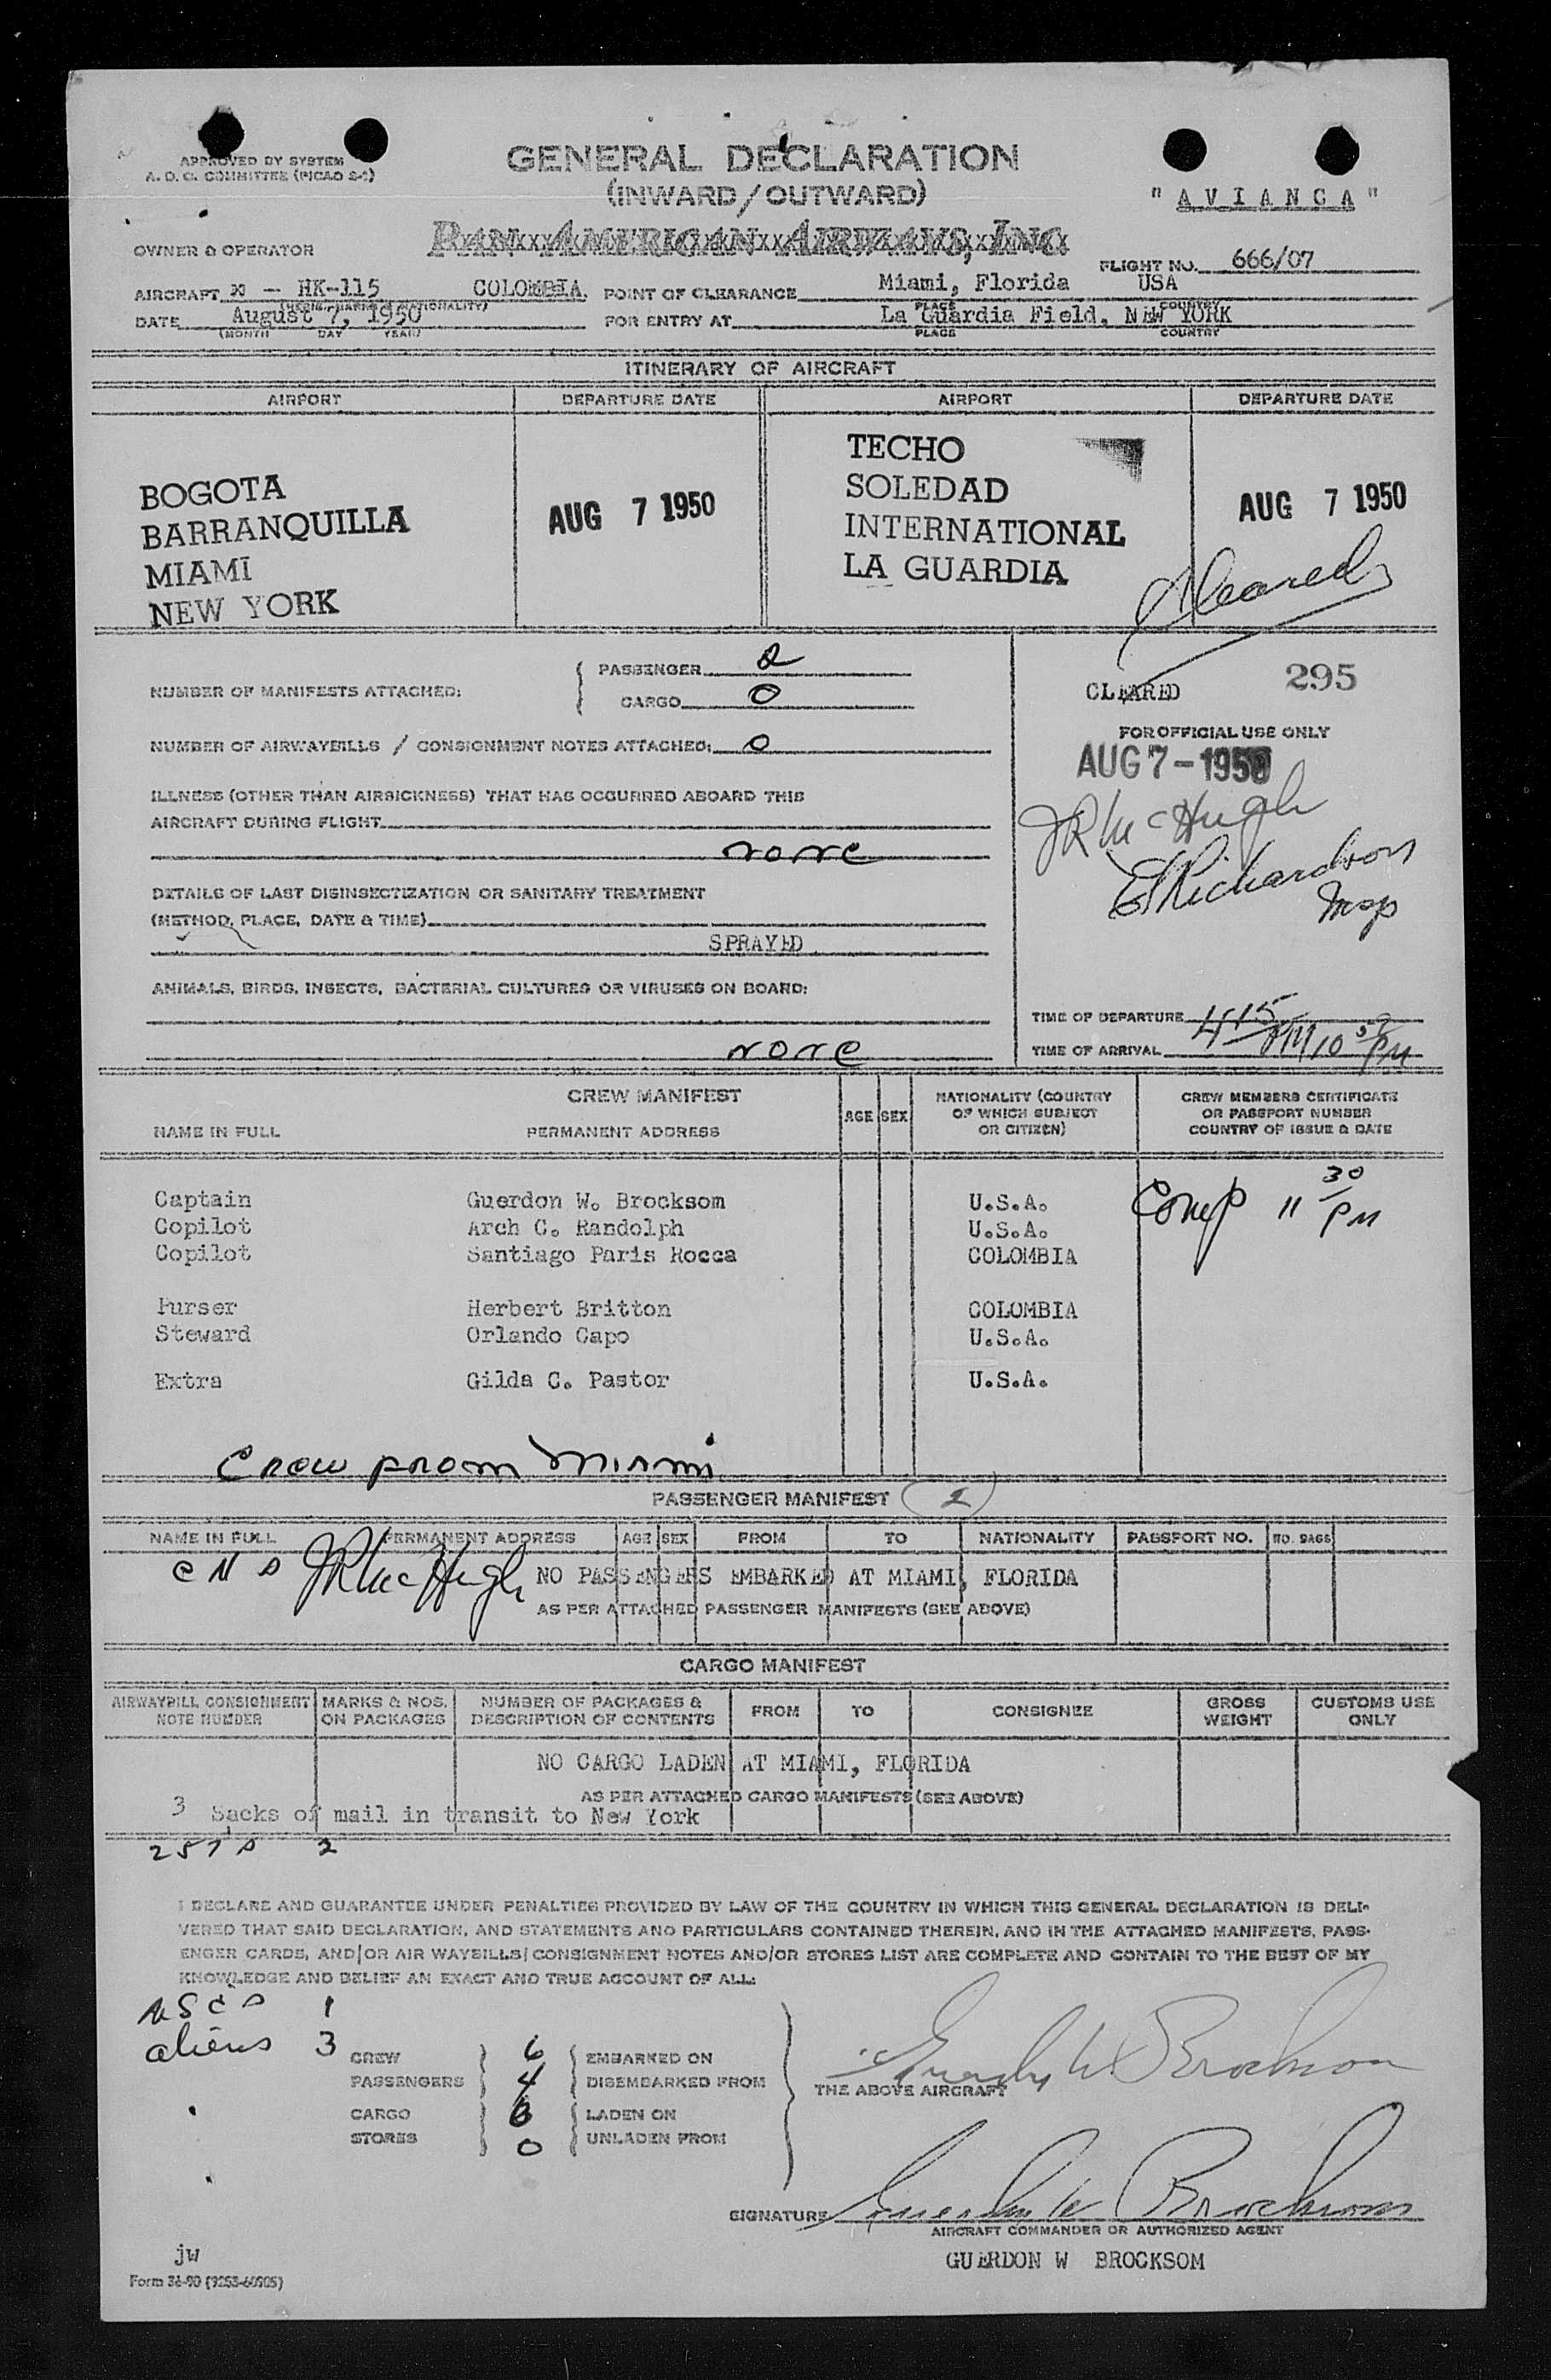 APPROVED BY SYSTEM
A. O. C. COMMITTEE (PICAO S-1)
GENERAL DECLARATION
(INWARD/OUTWARD)
" AVIANCA "
OWNER & OPERATOR
PAN AMERICAN AIRWAYS, INC.
FLIGHT NO. 666/07
AIRCRAFT - HK-115 COLOMBIA. POINT OF CLEARANCE Miami, Florida USA
PLACE COUNTRY
DATE August 7, 1950 FOR ENTRY AT La Guardia Field, NEW YORK
(MONTH DAY YEAR) PLACE COUNTRY
ITINERARY OF AIRCRAFT
AIRPORT DEPARTURE DATE AIRPORT DEPARTURE DATE
BOGOTA
BARRANQUILLA
MIAMI
NEW YORK
AUG 7 1950
TECHO
SOLEDAD
INTERNATIONAL
LA GUARDIA
AUG 7 1950
Cleared
NUMBER OF MANIFESTS ATTACHED:
PASSENGER 2
CARGO 0
NUMBER OF AIRWAYBILLS / CONSIGNMENT NOTES ATTACHED: 0
ILLNESS (OTHER THAN AIRSICKNESS) THAT HAS OCCURRED ABOARD THIS
AIRCRAFT DURING FLIGHT
none
DETAILS OF LAST DISINSECTIZATION OR SANITARY TREATMENT
(METHOD, PLACE, DATE & TIME)
SPRAYED
ANIMALS, BIRDS, INSECTS, BACTERIAL CULTURES OR VIRUSES ON BOARD:
none
CLEARED 295
FOR OFFICIAL USE ONLY
AUG 7-1950
JR McHugh
E Richardson
Insp
TIME OF DEPARTURE 4 15 PM
TIME OF ARRIVAL 10 PM
CREW MANIFEST
NAME IN FULL PERMANENT ADDRESS AGE SEX
NATIONALITY (COUNTRY
OF WHICH SUBJECT
OR CITIZEN)
CREW MEMBERS CERTIFICATE
OR PASSPORT NUMBER
COUNTRY OF ISSUE & DATE
Captain Guerdon W. Brocksom U.S.A.
Copilot Arch C. Randolph U.S.A.
Copilot Santiago Paris Rocca COLOMBIA
Comp 11 30 PM
Purser Herbert Britton COLOMBIA
Steward Orlando Capo U.S.A.
Extra Gilda C. Pastor U.S.A.
Crew from Miami
PASSENGER MANIFEST (2)
NAME IN FULL PERMANENT ADDRESS AGE SEX FROM TO NATIONALITY PASSPORT NO. NO. BAGS
JR McHugh NO PASSENGERS EMBARKED AT MIAMI, FLORIDA
AS PER ATTACHED PASSENGER MANIFESTS (SEE ABOVE)
CARGO MANIFEST
AIRWAYBILL CONSIGNMENT
NOTE NUMBER
MARKS & NOS.
ON PACKAGES
NUMBER OF PACKAGES &
DESCRIPTION OF CONTENTS
FROM TO CONSIGNEE
GROSS
WEIGHT
CUSTOMS USE
ONLY
NO CARGO LADEN AT MIAMI, FLORIDA
AS PER ATTACHED CARGO MANIFESTS (SEE ABOVE)
3 Sacks of mail in transit to New York
I DECLARE AND GUARANTEE UNDER PENALTIES PROVIDED BY LAW OF THE COUNTRY IN WHICH THIS GENERAL DECLARATION IS DELI-
VERED THAT SAID DECLARATION, AND STATEMENTS AND PARTICULARS CONTAINED THEREIN, AND IN THE ATTACHED MANIFESTS, PASS-
ENGER CARDS, AND/OR AIR WAYBILLS/CONSIGNMENT NOTES AND/OR STORES LIST ARE COMPLETE AND CONTAIN TO THE BEST OF MY
KNOWLEDGE AND BELIEF AN EXACT AND TRUE ACCOUNT OF ALL:
USCs 1
aliens 3
CREW 6 EMBARKED ON
PASSENGERS 4 DISEMBARKED FROM
CARGO 0 LADEN ON
STORES 0 UNLADEN FROM
Guerdon W Brocksom
THE ABOVE AIRCRAFT
SIGNATURE Guerdon W Brocksom
AIRCRAFT COMMANDER OR AUTHORIZED AGENT
GUERDON W BROCKSOM
jw
Form 36-90 (9253-60505)